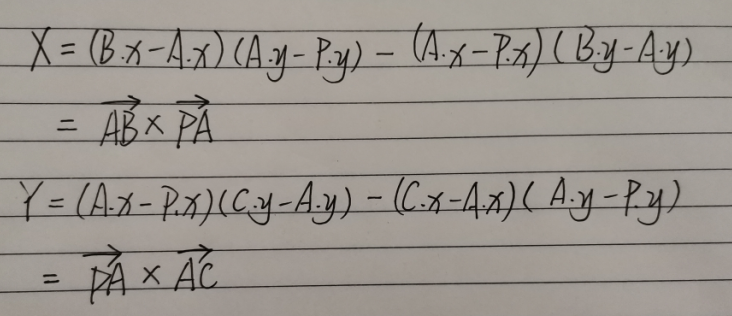 X = (B.x-A.x)(A.y-P.y) - (A.x-P.x)(B.y-A.y)
= \overrightarrow{AB} × \overrightarrow{PA}
Y = (A.x-P.x)(C.y-A.y) - (C.x-A.x)(A.y-P.y)
= \overrightarrow{PA} × \overrightarrow{AC}